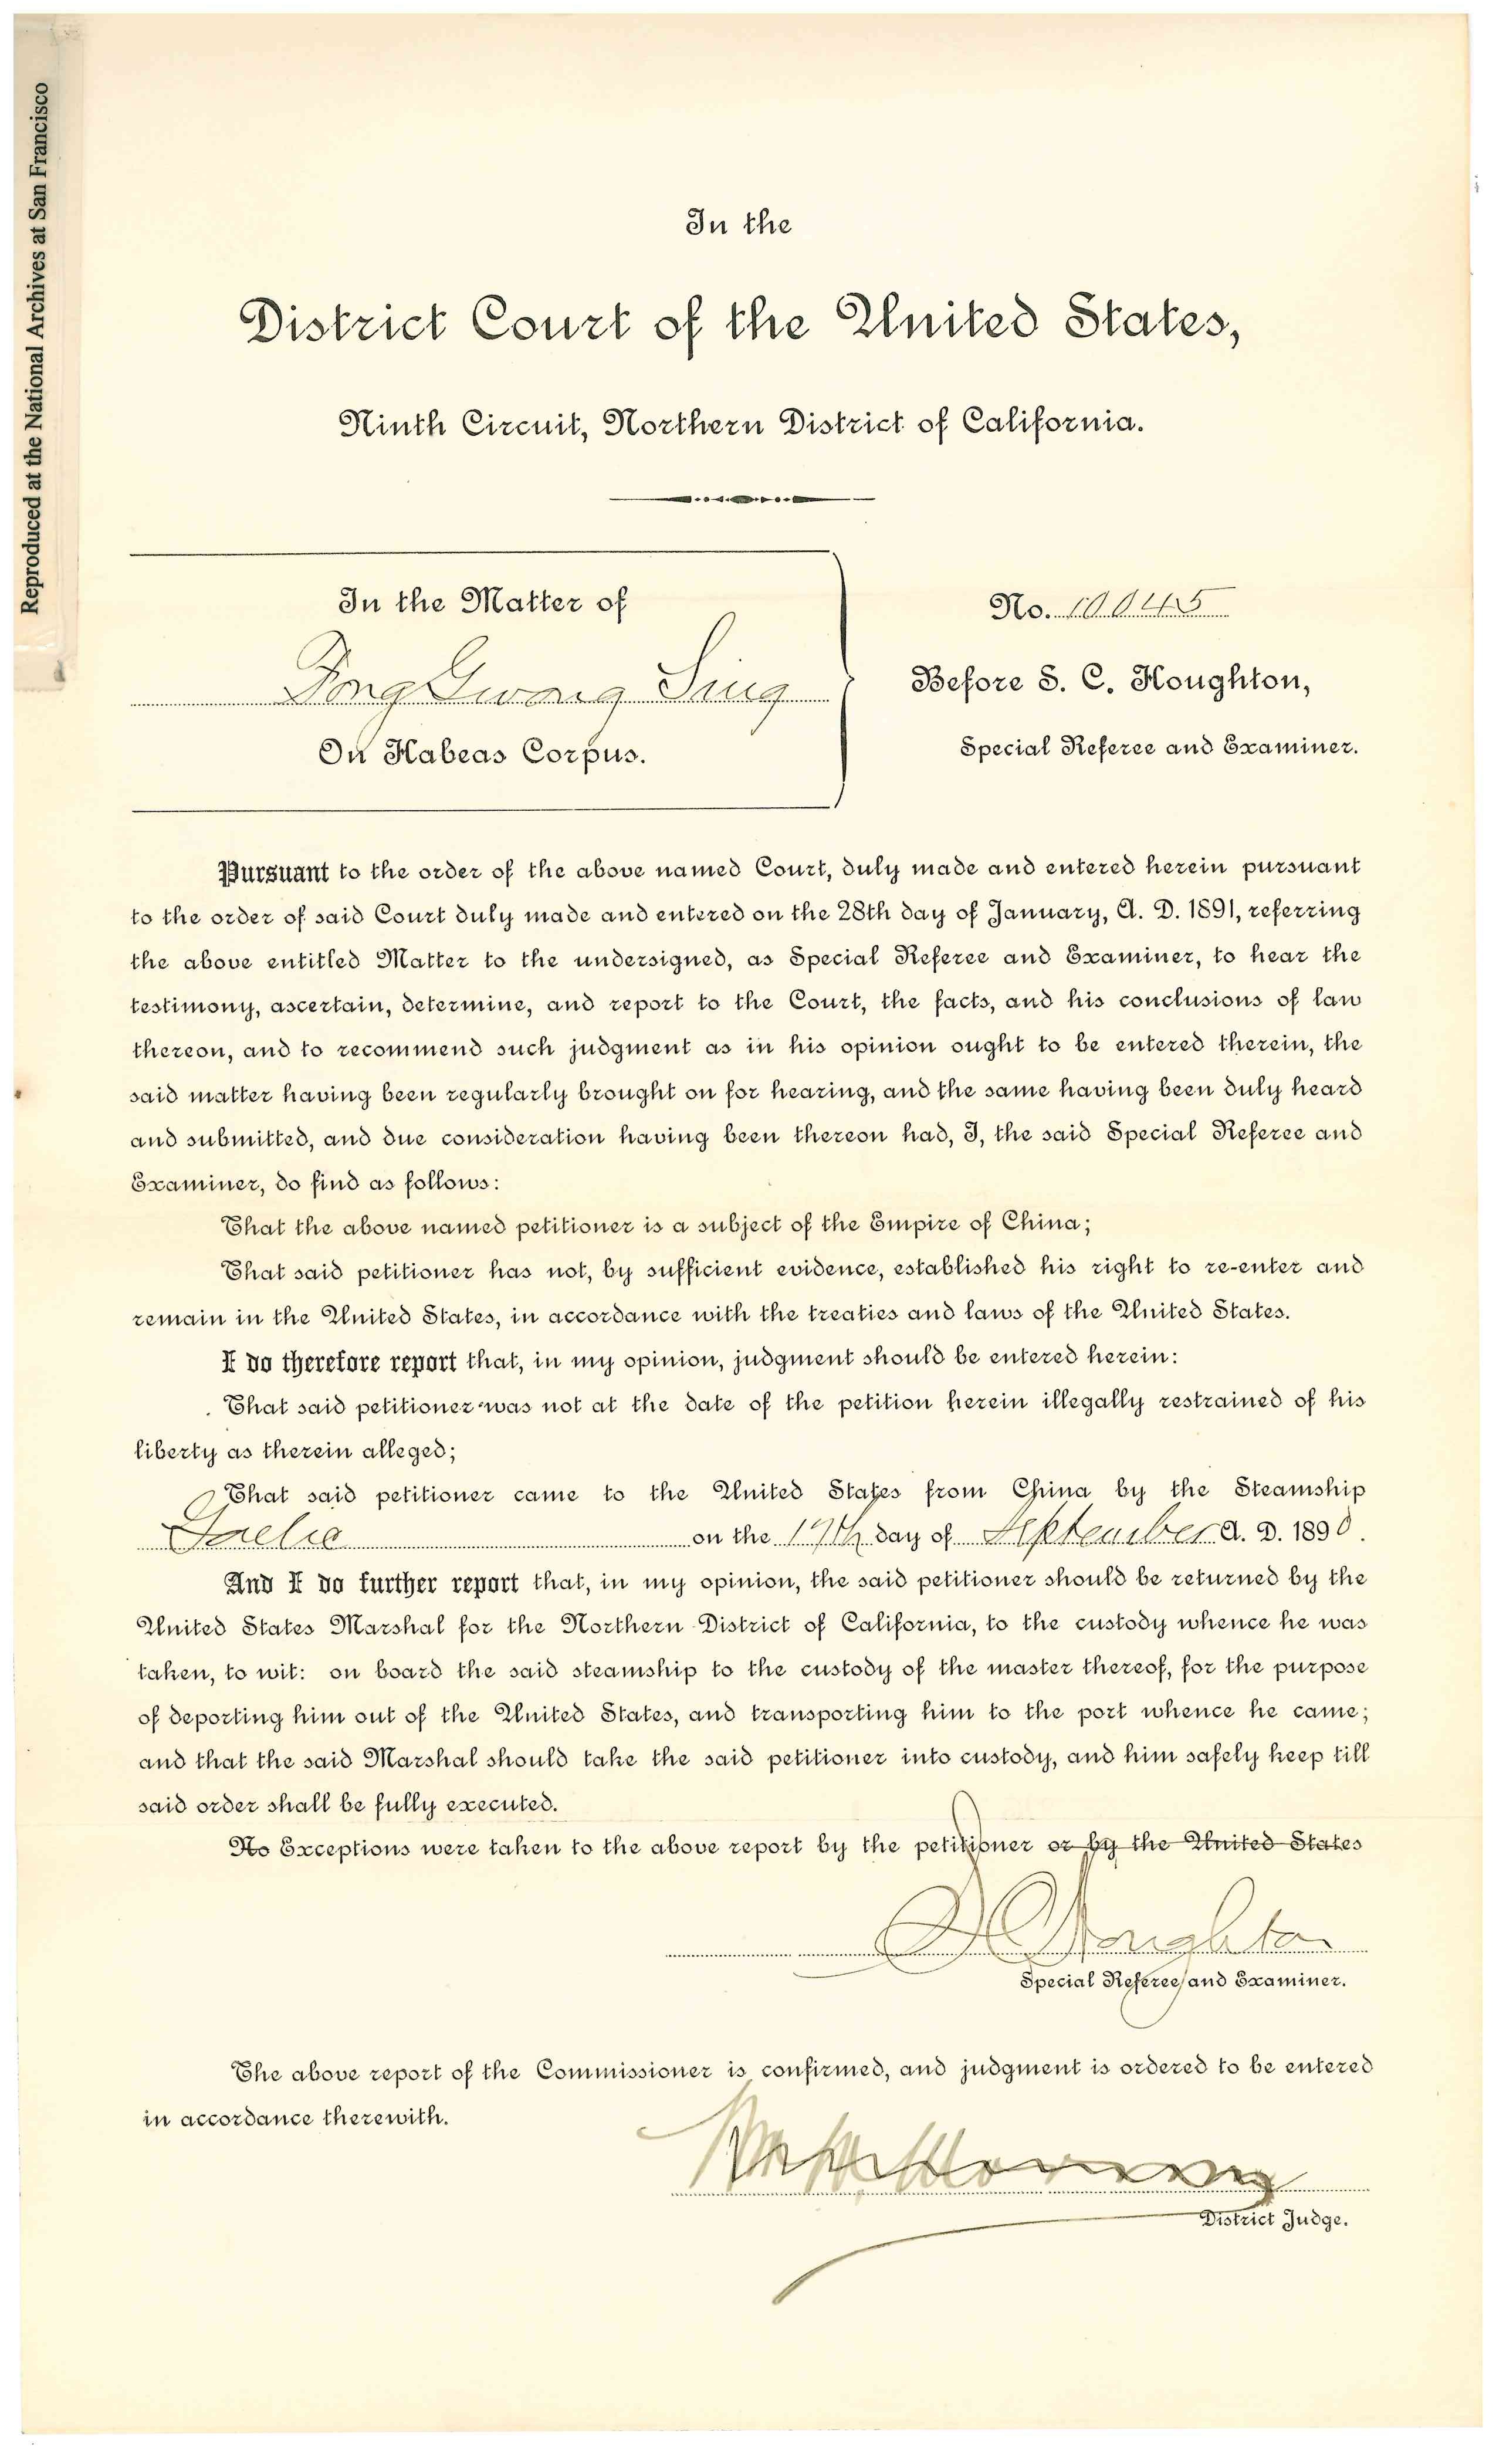 Reproduced at the National Archives at San Francisco
In the
District Court of the United States,
Ninth Circuit, Northern District of California.
In the Matter of
Fong Gwong Sing
On Habeas Corpus.
No. 10045
Before S. C. Houghton,
Special Referee and Examiner.
Pursuant to the order of the above named Court, duly made and entered herein pursuant
to the order of said Court duly made and entered on the 28th day of January, A. D. 1891, referring
the above entitled Matter to the undersigned, as Special Referee and Examiner, to hear the
testimony, ascertain, determine, and report to the Court, the facts, and his conclusions of law
thereon, and to recommend such judgment as in his opinion ought to be entered therein, the
said matter having been regularly brought on for hearing, and the same having been duly heard
and submitted, and due consideration having been thereon had, I, the said Special Referee and
Examiner, do find as follows:
That the above named petitioner is a subject of the Empire of China;
That said petitioner has not, by sufficient evidence, established his right to re-enter and
remain in the United States, in accordance with the treaties and laws of the United States.
I do therefore report that, in my opinion, judgment should be entered herein:
That said petitioner was not at the date of the petition herein illegally restrained of his
liberty as therein alleged;
That said petitioner came to the United States from China by the Steamship
Gaelic on the 19th day of September A. D. 1890.
And I do further report that, in my opinion, the said petitioner should be returned by the
United States Marshal for the Northern District of California, to the custody whence he was
taken, to wit: on board the said steamship to the custody of the master thereof, for the purpose
of deporting him out of the United States, and transporting him to the port whence he came;
and that the said Marshal should take the said petitioner into custody, and him safely keep till
said order shall be fully executed.
No Exceptions were taken to the above report by the petitioner or by the United States
S C Houghton
Special Referee and Examiner.
The above report of the Commissioner is confirmed, and judgment is ordered to be entered
in accordance therewith.
Wm W. Morrow
District Judge.